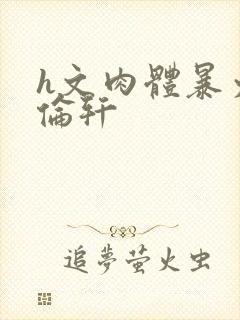 h文肉體暴
倫軒
追夢螢火虫